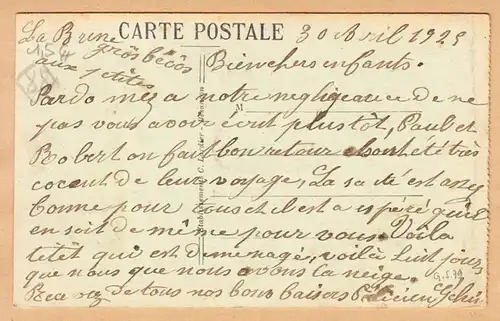 La Brune CARTE POSTALE 30 Avril 1925
grôs bécôs
aux ptêtes
1,54
Bien chers enfants.
Pardo mez a notre negligeance de ne
pas vous avoir écrit plustôt, Paul et
Robert on fait bon retour et ont été très
cocent de leur voyage, La sa té est assez
bonne pour tous et il est a espéré qu'il
en soit de même pour vous Voila
tetêt qui est demenagé, voilà huit jours
que nous que nous avons la neige.
Recevez de tous nos bons baisers
G.S.79